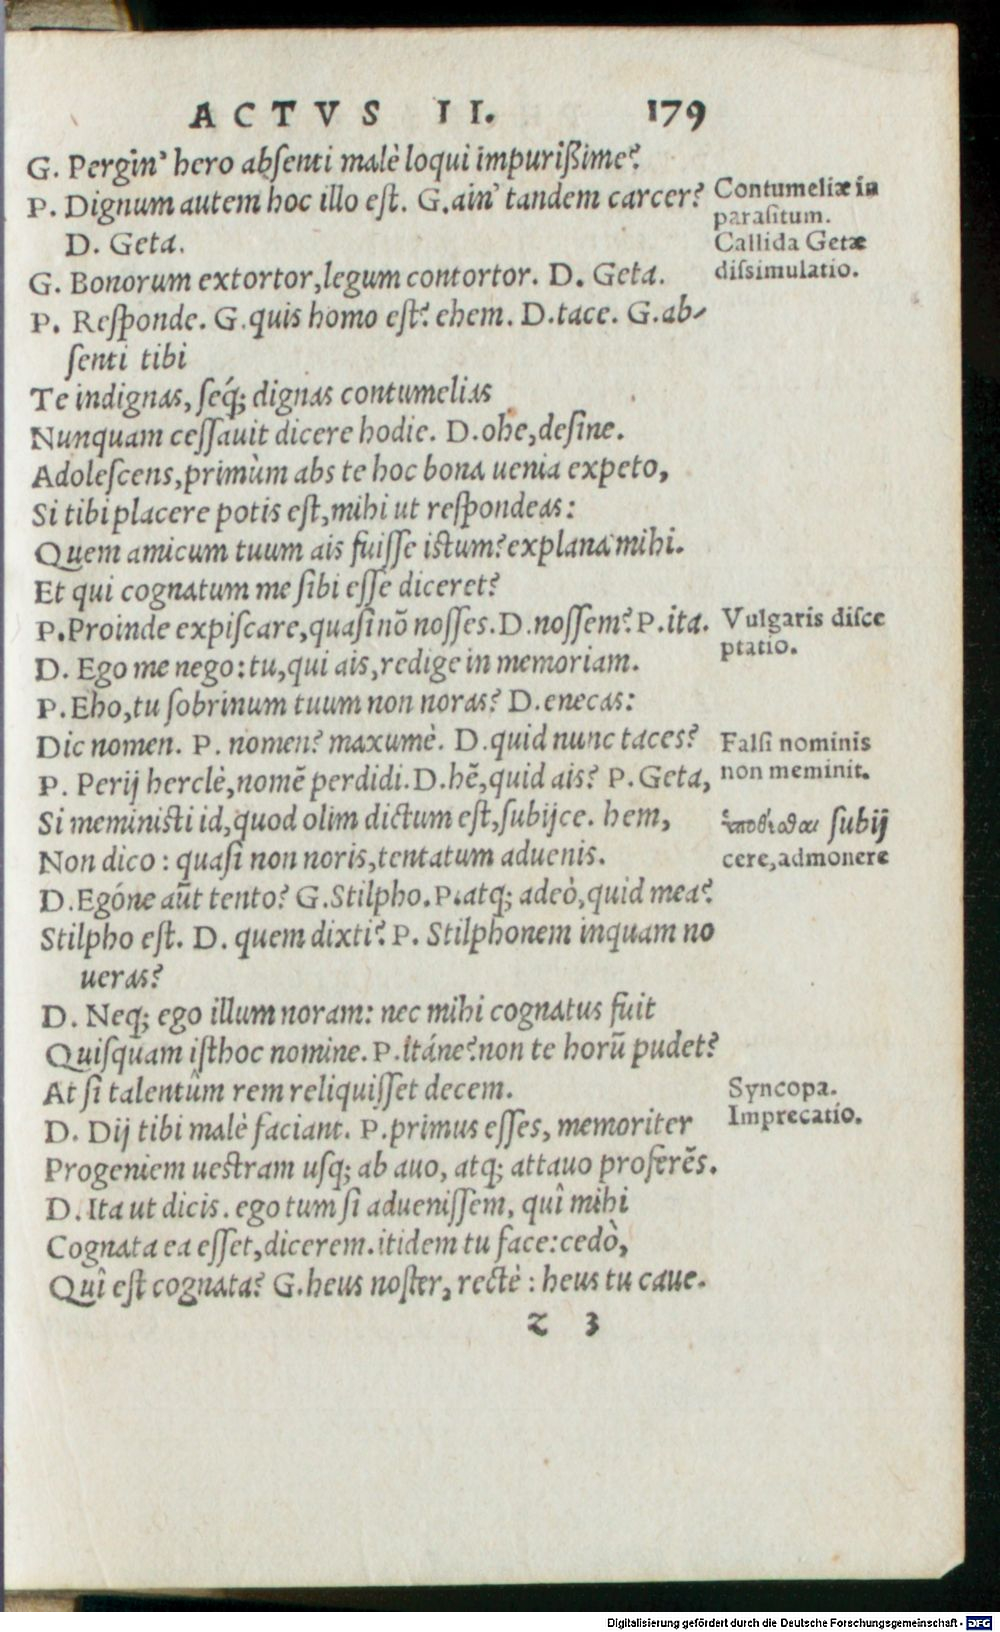 ACTVS II. 179
G. Pergin' hero absenti malè loqui impurißime?
P. Dignum autem hoc illo est. G.ain' tandem carcer?
Contumeliæ in
parasitum.
D. Geta.
Callida Getæ
dissimulatio.
G. Bonorum extortor,legum contortor. D. Geta.
P. Responde. G.quis homo est? ehem. D.tace. G.ab-
senti tibi
Te indignas, seq́; dignas contumelias
Nunquam cessauit dicere hodie. D.ohe,desine.
Adolescens,primùm abs te hoc bona uenia expeto,
Si tibi placere potis est,mihi ut respondeas:
Quem amicum tuum ais fuisse istum?explana mihi.
Et qui cognatum me sibi esse diceret?
P.Proinde expiscare,quasi nō nosses.D.nossem?P.ita.
Vulgaris disce
ptatio.
D. Ego me nego:tu,qui ais,redige in memoriam.
P.Eho,tu sobrinum tuum non noras? D.enecas:
Dic nomen. P. nomen? maxumè. D.quid nunc taces?
Falsi nominis
non meminit.
P. Perij herclè,nomē perdidi.D.hē,quid ais? P.Geta,
Si meministi id,quod olim dictum est,subijce. hem,
subij
cere,admonere
Non dico: quasi non noris,tentatum aduenis.
D.Egóne aūt tento? G.Stilpho.P.atq; adeò,quid mea?
Stilpho est. D. quem dixti? P. Stilphonem inquam no
ueras?
D. Neq; ego illum noram: nec mihi cognatus fuit
Quisquam isthoc nomine. P.itáne?non te horū pudet?
At si talentûm rem reliquisset decem.
Syncopa.
Imprecatio.
D. Dij tibi malè faciant. P.primus esses, memoriter
Progeniem uestram usq; ab auo, atq; attauo proferēs.
D.Ita ut dicis. ego tum si aduenissem, quî mihi
Cognata ea esset,dicerem.itidem tu face:cedò,
Quî est cognata? G.heus noster, rectè: heus tu caue.
z 3
Digitalisierung gefördert durch die Deutsche Forschungsgemeinschaft - DFG